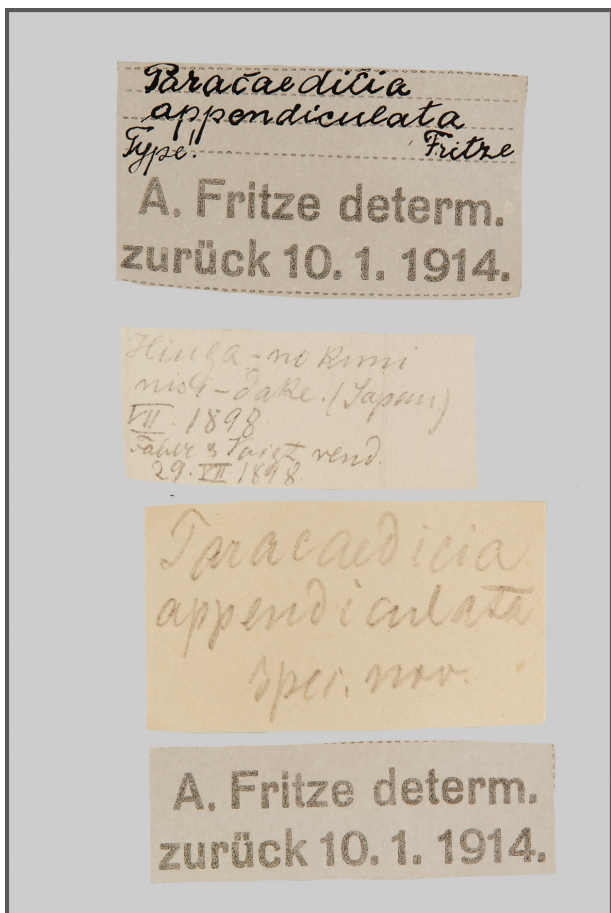 Paracaedicia
appendiculata
Type! Fritze
A. Fritze determ.
zurück 10. 1. 1914.
Hiuga-no kuni
nisi-dake. (Japan)
VII. 1898
Faber & Voigt vend.
29. VII 1898
Paracaedicia
appendiculata
spec. nov.
A. Fritze determ.
zurück 10. 1. 1914.